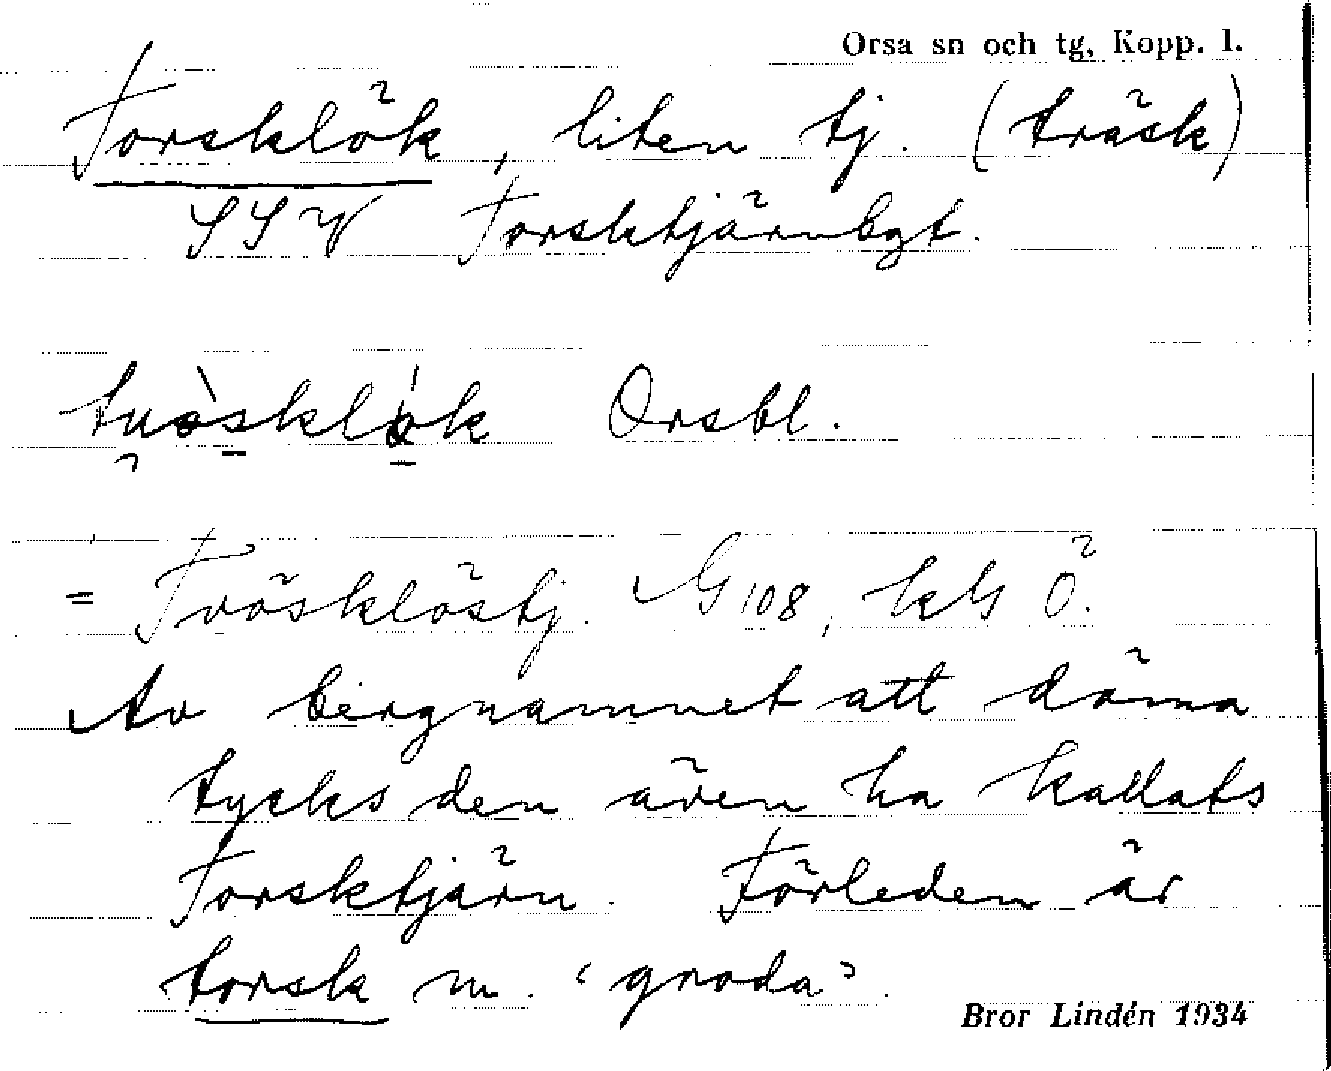 Orsa sn och tg, Kopp. l.
Torsklök, liten tj. (träsk)
SSV Torsktjärnbgt.
tuòsklók Orsbl.
= Tvösklöstj. G 108, kbl Ö.
Av bergnamnet att döma
tycks den även ha kallats
Torsktjärn. Förleden är
torsk m. ‘groda’.
Bror Lindén 1934